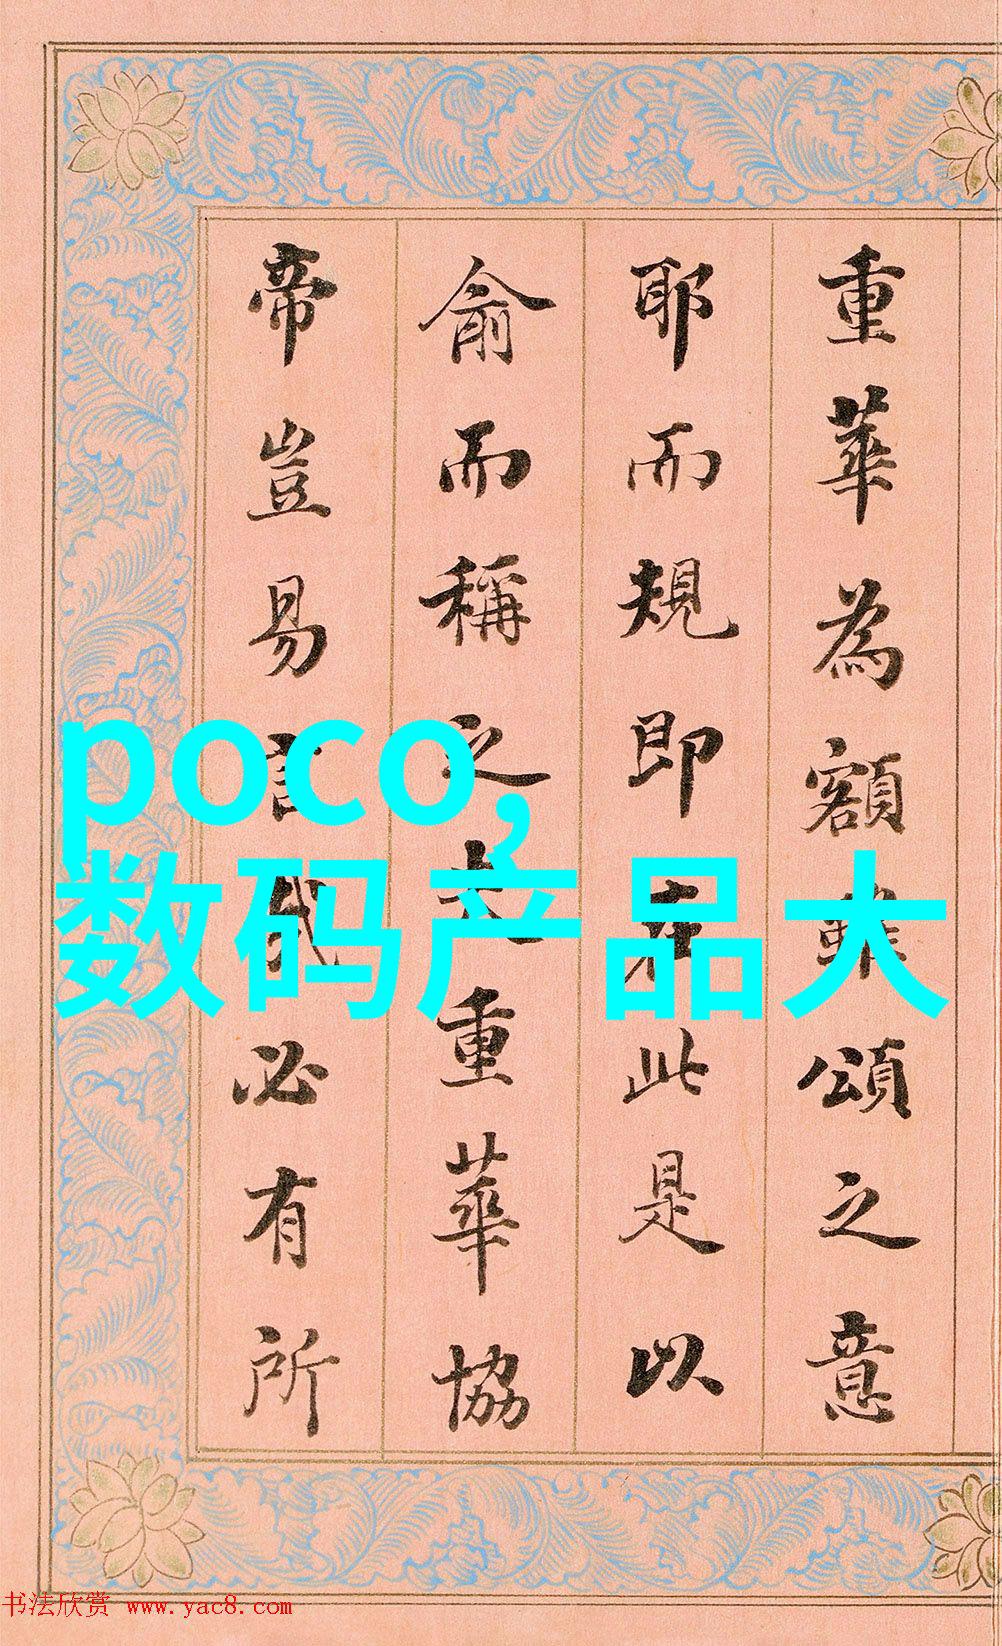 重華為額雖頌之意
耶而規即在此是以
俞而稱之夫重華協
帝豈易言哉必有所
poco,
数码产品大
书法欣赏 www.yac8.com